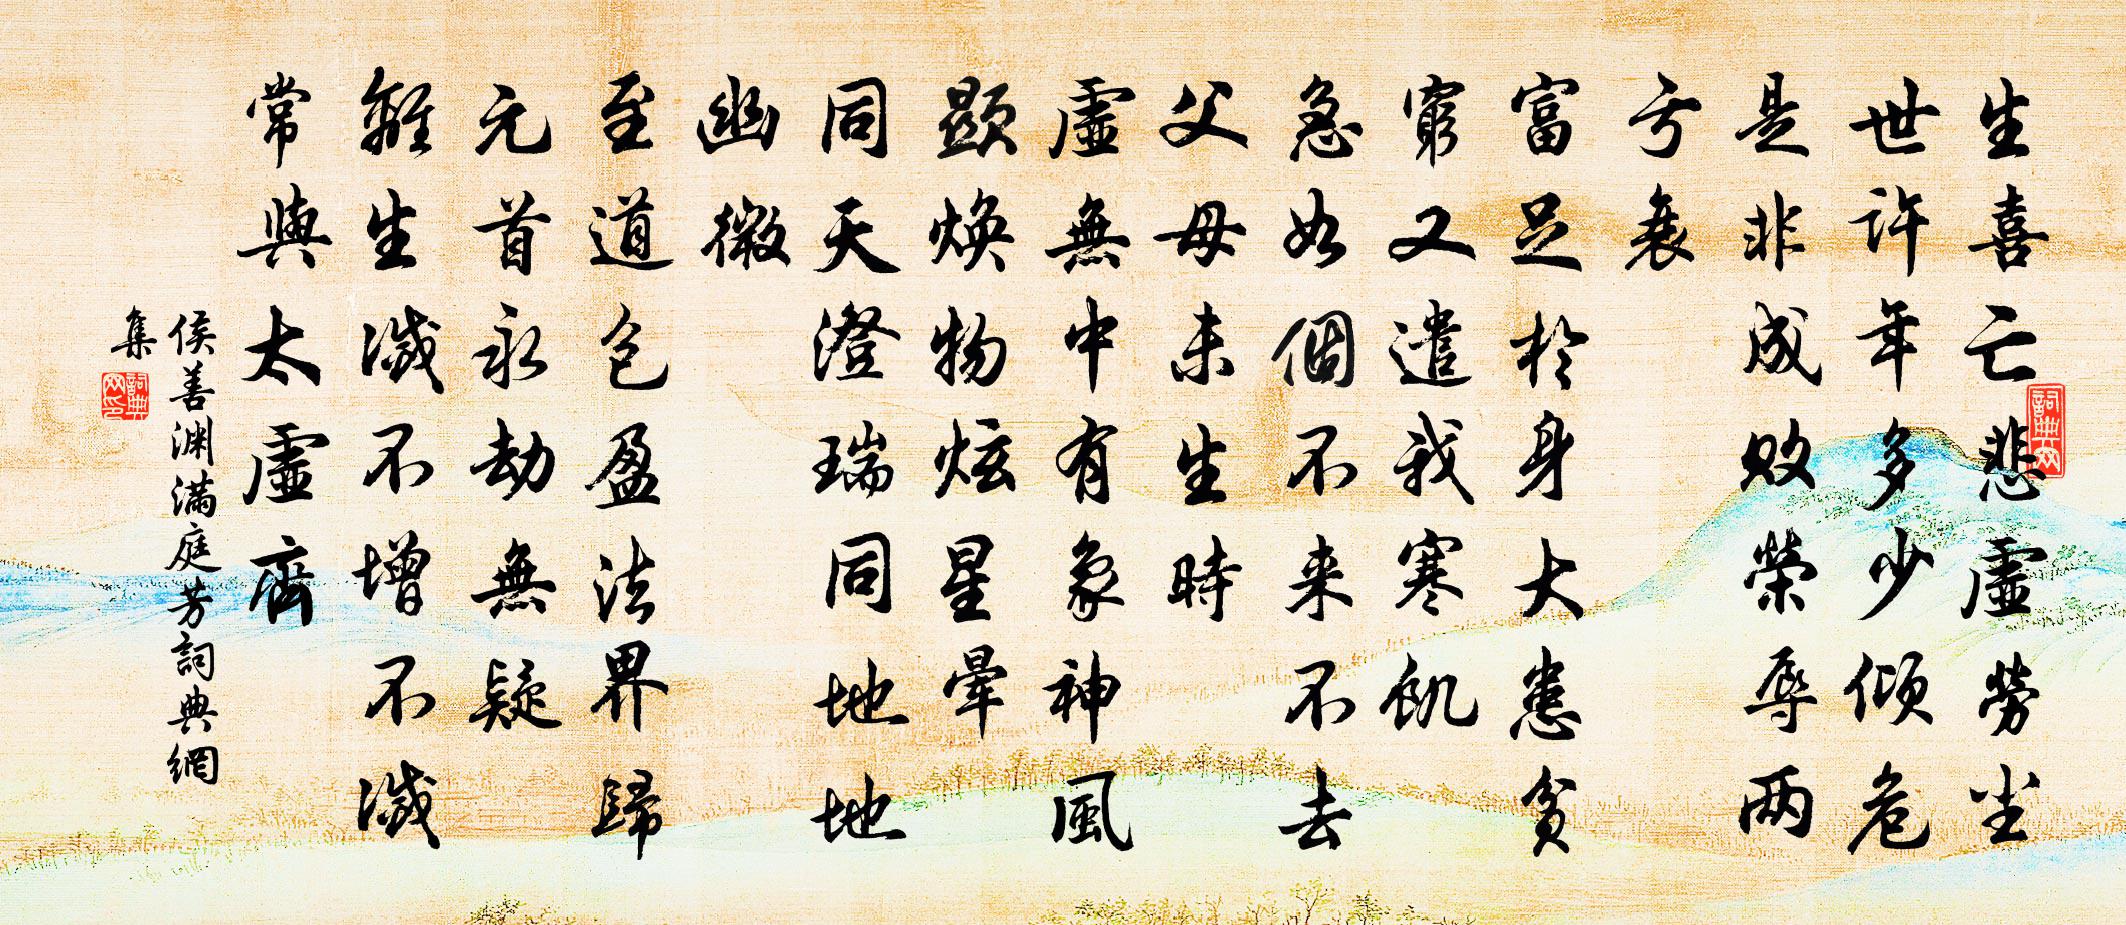 生喜亡悲虛勞尘
世許年多少傾危
是非成败榮辱两
亏衰
富足於身大患貧
窮又遣我寒飢
急如個不来不去
父母未生時
虛無中有象神風
顯焕物炫星暈
同天澄瑞同地地
幽微
至道包盈法界歸
元首永劫無疑
離生滅不增不滅
常與太虛齊
侯善渊满庭芳詞典網
集
詞典网
詞典网印